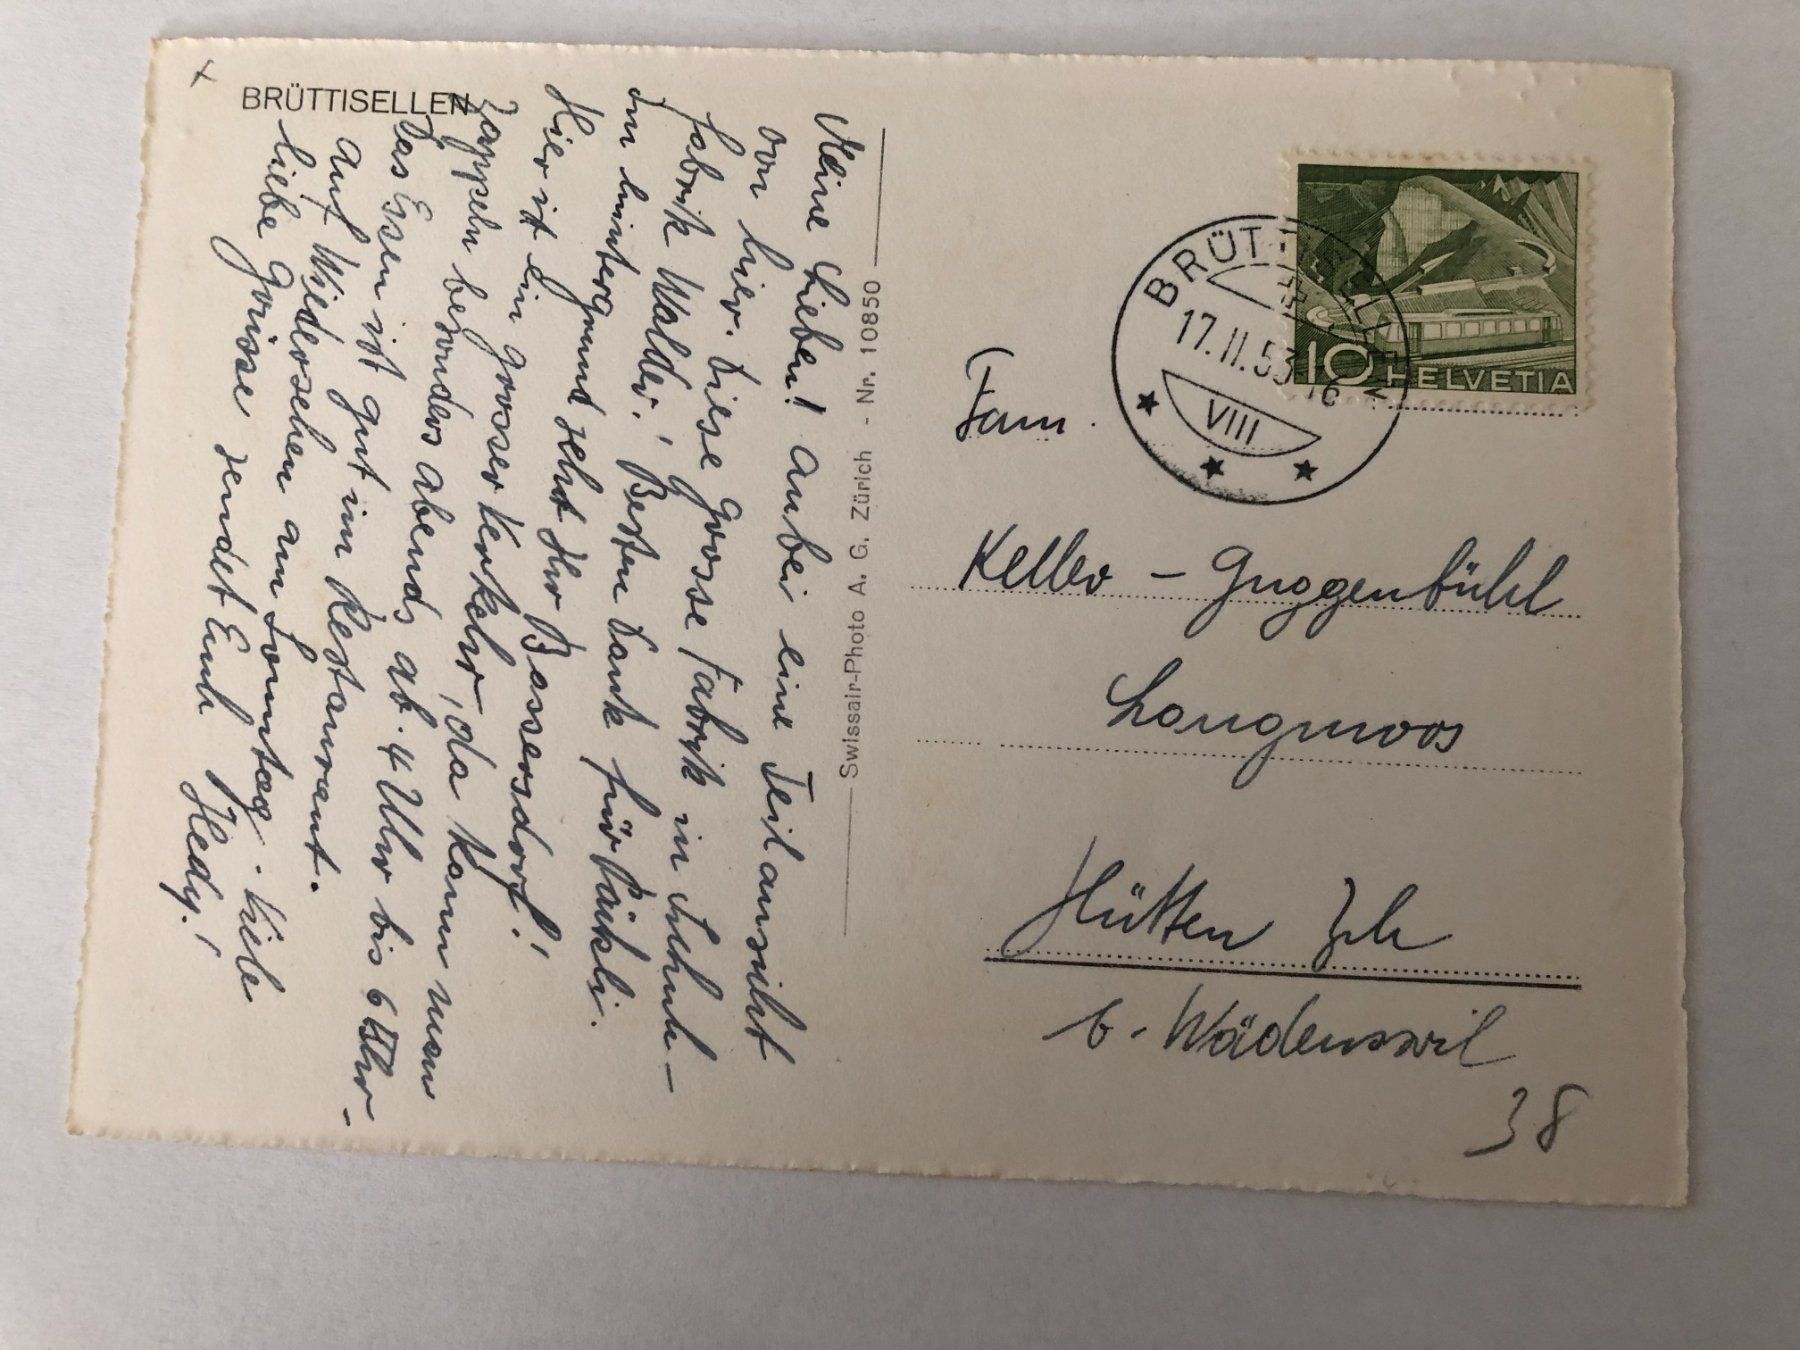 BRÜTTISELLEN
Meine Lieben! Anbei eine Teilansicht
von hier. Diese grosse Fabrik in Schuh-
fabrik Walder! Besten Dank für Päckli.
Im hintergrund seht Ihr Bassersdorf!
Hier ist ein grosser Verkehr, da kann man
zappeln besonders abends ab. 4 Uhr bis 6 Uhr -
Das Essen ist gut im Restaurant.
Auf Wiedersehen am Sonntag. Viele
liebe Grüsse sendet Euch Hedy!
Swissair-Photo A. G. Zürich - Nr. 10850
BRÜTTISELLEN
17.II.53
VIII
10 HELVETIA
Fam.
Keller - Guggenbühl
Langmoos
Hütten Zch
b. Wädenswil
38